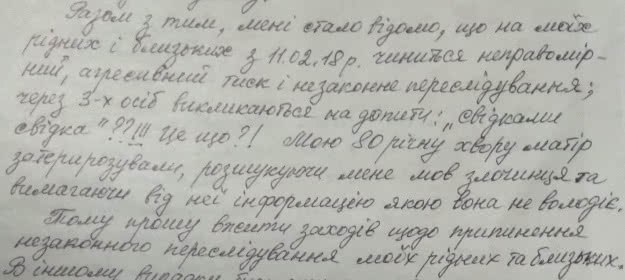 Разом з тим, мені стало відомо, що на моїх
рідних і близьких з 11.02.18р. чиниться неправомір-
ний, агресивний тиск і незаконне переслідування;
через 3-х осіб викликаються на допити: „свідками
свідка"??!!! Це що?! Мою 80 річну хвору матір
затерирозували, розшукуючи мене мов злочинця та
вимагаючи від неї інформацією якою вона не володіє.
Тому прошу вжити заходів щодо припинення
незаконного переслідування моїх рідних та близьких.
В іншому випадку